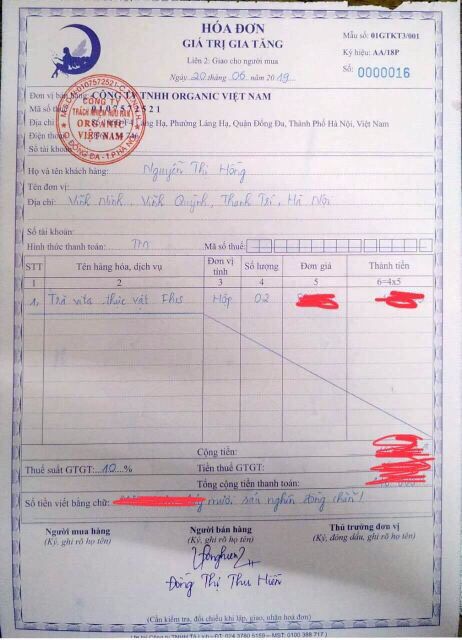 HÓA ĐƠN
GIÁ TRỊ GIA TĂNG
Liên 2: Giao cho người mua
Ngày 20 tháng 06 năm 2019
Mẫu số: 01GTKT3/001
Ký hiệu: AA/18P
Số: 0000016
Đơn vị bán hàng: CÔNG TY TNHH ORGANIC VIỆT NAM
Mã số thuế: 0107572521
Láng Hạ, Phường Láng Hạ, Quận Đống Đa, Thành Phố Hà Nội, Việt Nam
Điện thoại
Số tài khoản
CÔNG TY
TRÁCH NHIỆM HỮU HẠN
ORGANIC
VIỆT NAM
Q. ĐỐNG ĐA - T.P HÀ NỘI
Họ và tên khách hàng: Nguyễn Thị Hồng
Tên đơn vị:
Địa chỉ: Vĩnh Ninh, Vĩnh Quỳnh, Thanh Trì, Hà Nội
Số tài khoản:
Hình thức thanh toán: TM Mã số thuế:
STT Tên hàng hóa, dịch vụ Đơn vị tính Số lượng Đơn giá Thành tiền
1 2 3 4 5 6=4x5
1. thực vật Hộp 02
Cộng tiền:
Thuế suất GTGT: 10 % Tiền thuế GTGT:
Tổng cộng tiền thanh toán:
Số tiền viết bằng chữ: mươi sáu nghìn đồng chẵn!
Người mua hàng Người bán hàng Thủ trưởng đơn vị
(Ký, ghi rõ họ tên) (Ký, ghi rõ họ tên) (Ký, đóng dấu, ghi rõ họ tên)
Đồng Thị Thu Hiền
(Cần kiểm tra, đối chiếu khi lập, giao, nhận hoá đơn)